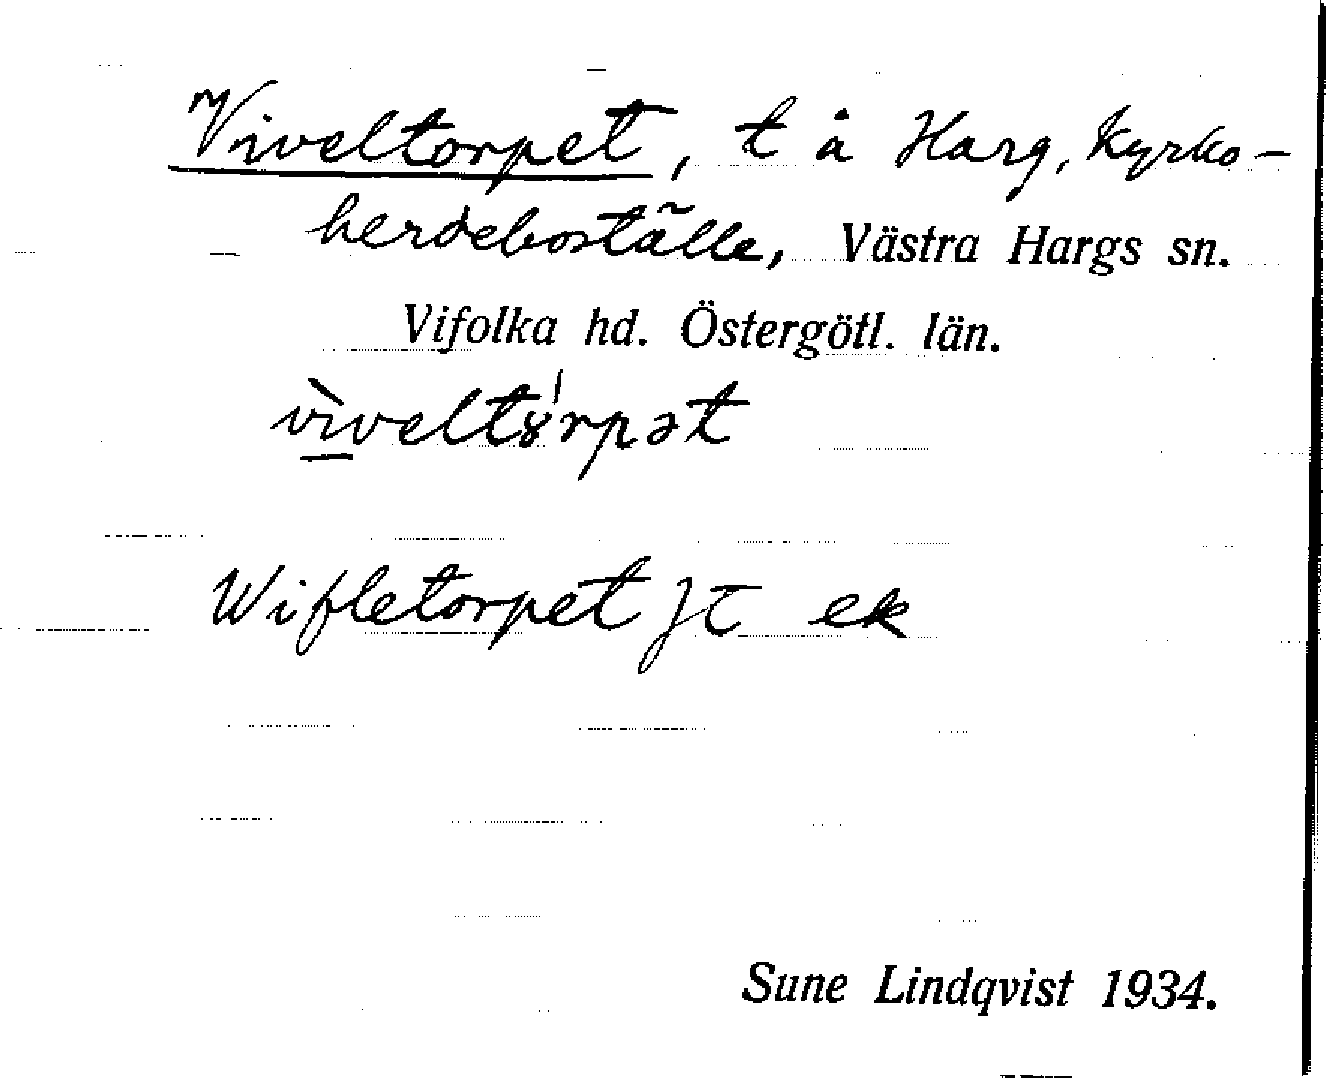 Viveltorpet, t å Harg, kyrko-
herdeboställe, Västra Hargs sn.
Vifolka hd. Östergötl. län.
vìveltȣ'rpət
Wifletorpet Jt ek
Sune Lindqvist 1934.